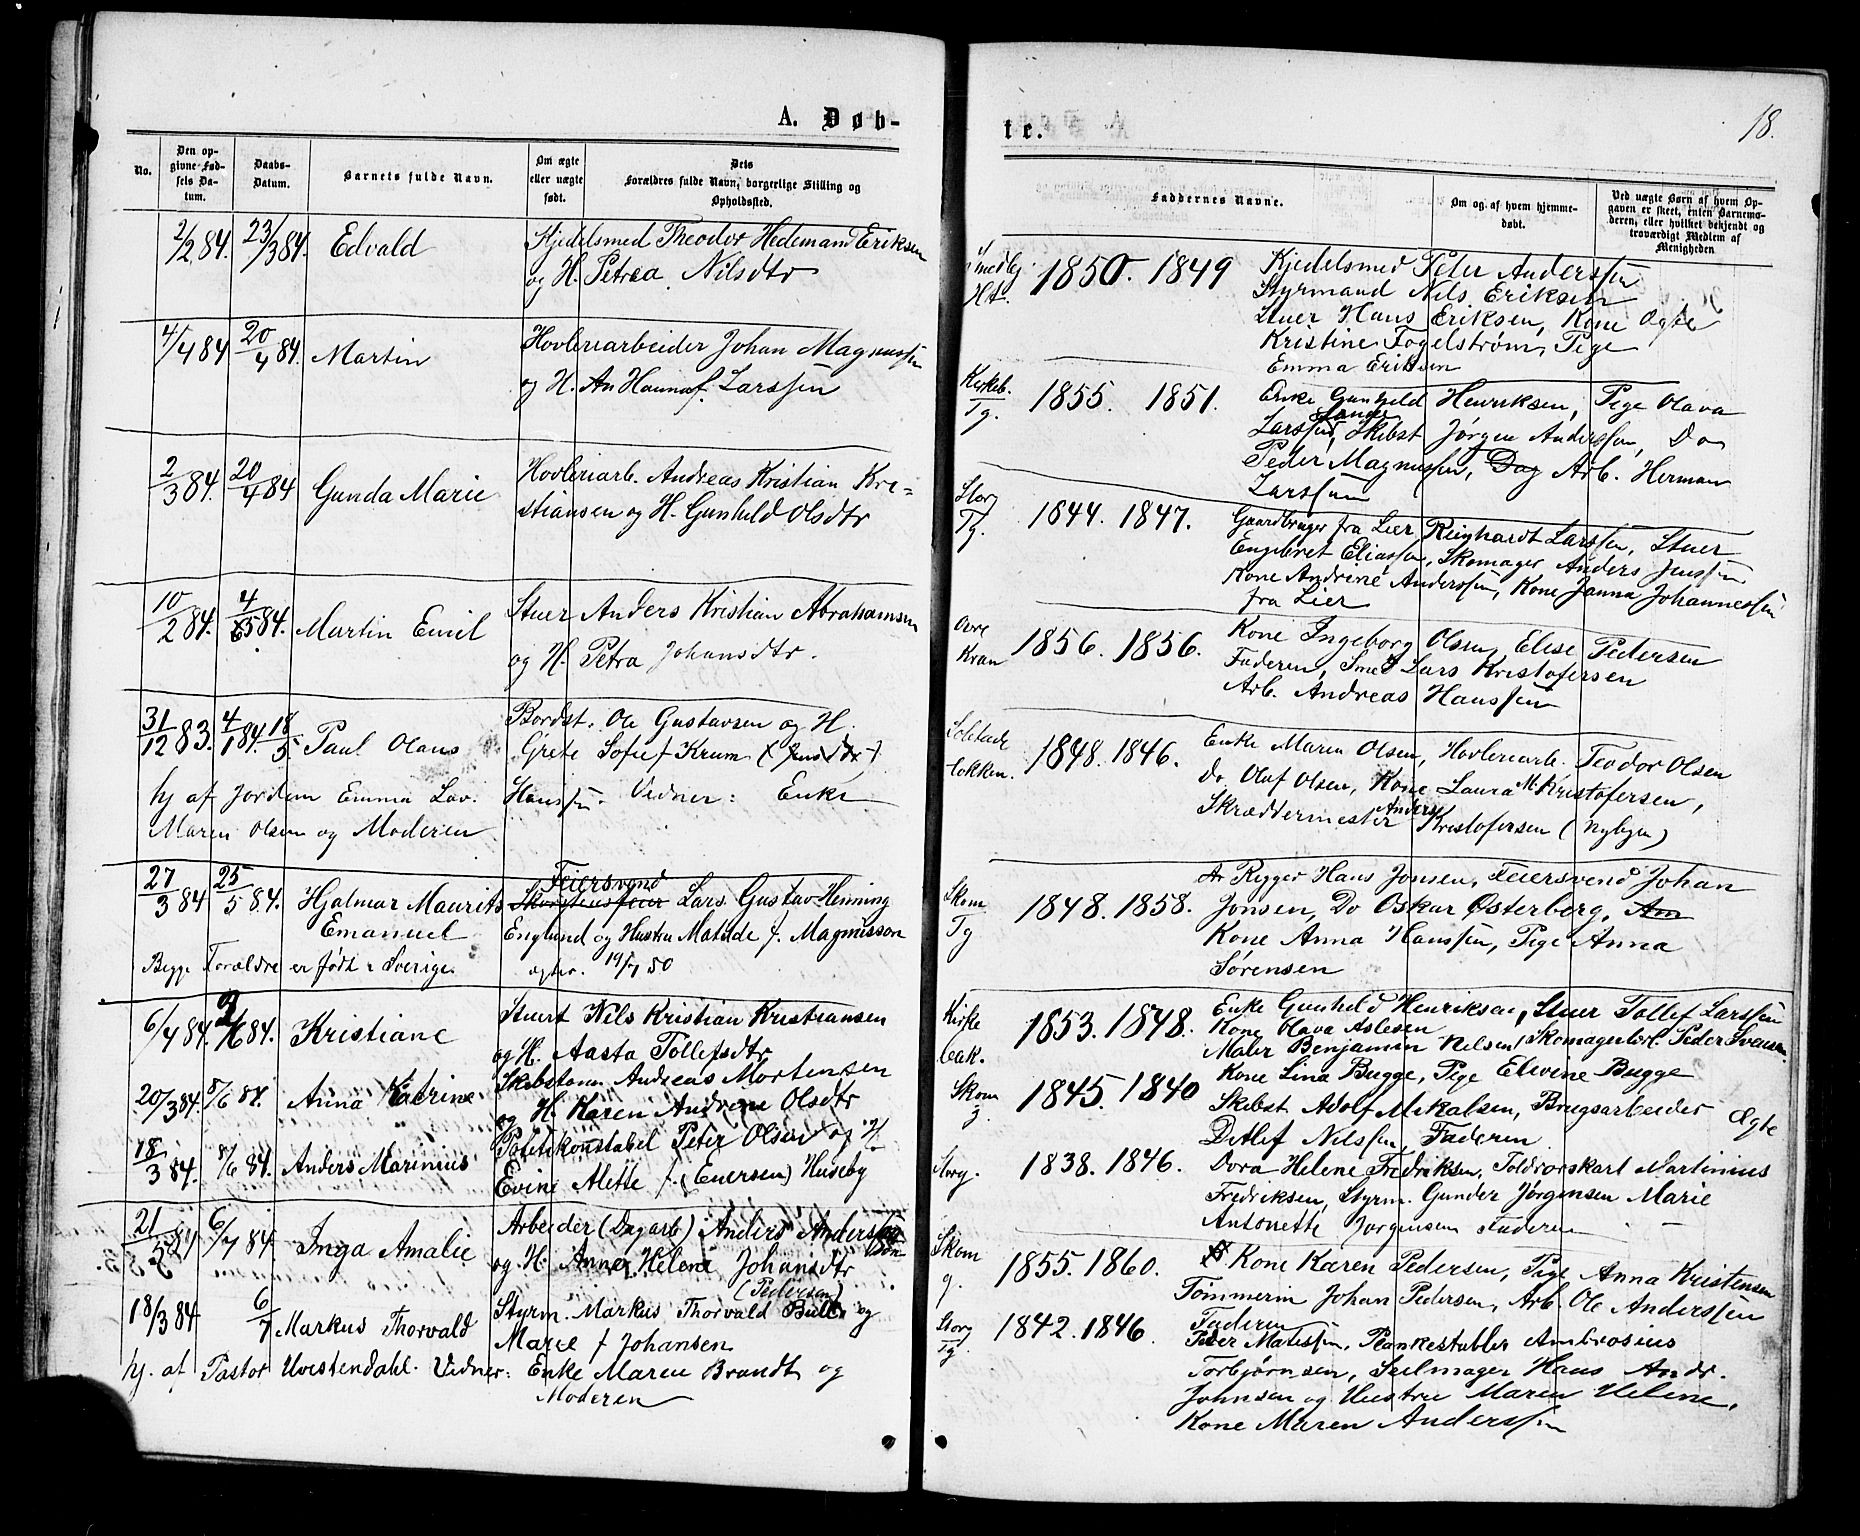 A. Døb-
No.
Den op-
givne Fød-
sels Da-
tum.
Daabs-
Datum.
Barnets fulde Navn.
Om ægte
eller uægte
født.
Dets
Forældres fulde Navn, borgerlige Stilling og
Opholdssted.
2/2 84. 23/3 84. Edvald
Kjedelsmed Theodor Hedemand Eriksen
og H. Petrea Nilsdtr
4/4 84 20/4 84. Martin
Hovleriarbeider Johan Magnussen
og H. An Hanna f. Larssen
2/3 84. 20/4 84 Gunda Marie
Hovleriarb. Andreas Kristian Kri-
stiansen og H. Gunhild Olsdtr
10/2 84. 4/5 84. Martin Emil
Stuer Anders Kristian Abrahamsen
og H. Petra Johansdtr.
31/12 83. 4/1 84. 18/5 Paul Olaus
Bordst. Ole Gustavsen og H.
Grete Sofie f. Krum
hj af Jordem Emma Lov. Hanssen. Vidner: Enke
Maren Olsen og Moderen
27/3 84 25/5 84. Hjalmar Maurits
Emanuel
Feiersvend
Skorstensfeier Lars Gustav Henning
Englund og Hustru Matilde f. Magnusson
Begge Forældre er født i Sverige.
6/4 84. 84. Kristiane
Stuert Nils Kristian Kristiansen
og H. Aasta Tollefsdtr
20/3 84. 8/6 84. Anna Katrine
Skibstøm. Andreas Mortensen
og H. Karen Andrene Olsdtr
18/3 84. 8/6 84. Anders Marinius
Politikonstabel Peter Olsen og H.
Evine Mette f. (Enersen) Huseby
21/5 84 6/7 84. Inga Amalie
Arbeider (Dagarb) Anders Anderssen
og H. Anne Helene Johansdtr
(Pedersen)
18/3 84 6/7 Markus Thorvald
Styrm. Markus Thorvald Bull og
Marie f Johansen
hj. af Pastor Uvestendahl. Vidner: Enke Maren Brandt og
Moderen
te.
18.
Faddernes Navne.
Om og af hvem hjemme-
døbt.
Ved uægte Børn af hvem Op-
gaven er skeet, enten Barnemo-
deren, eller hvilket bekjendt og
troværdigt Medlem af
Menigheden
1850. 1849
Kjedelsmed Peter Anderssen
Styrmand Nils Eriksen
Stuer Hans Eriksen, Kone Agte
Kristine Fogelstrøm, Pige
Emma Eriksen
Kirkeb.
Tg.
1855. 1851.
Enke Gunhild Henriksen, Pige Olava
Larssen, Skibst Jørgen Anderssen, Do
Peder Magnussen, Dag Arb. Herman
Larssen
Storg
Tg.
1844. 1847.
Gaardbruger fra Lier Reinhardt Larssen, Stuer
Engebret Eliassen, Skomager Anders Jenssen
Kone Andrine Anderssen, Kone Janna Johannessen
fra Lier
Øvre
Kran
1856. 1856.
Kone Ingeborg Olsen, Elise Pedersen
Faderen, Smed Lars Kristofersen
Arb. Andreas Hanssen
1848. 1846.
Enke Maren Olsen, Hovleriarb. Teodor Olsen
Do Olaf Olsen, Kone Laura M. Kristofersen,
Skræddermester Anders Kristofersen (Nybyen)
Skom
Tg
1848. 1858.
Rigger Hans Jonsen, Feiersvend Johan
Jonsen, Do Oskar Østerberg, Am
Kone Anna Hanssen, Pige Anna
Sørensen
Kirke
bak.
1853. 1848.
Enke Gunhild Henriksen, Stuer Tollef Larssen
Kone Olava Aslesen
Maler Benjamin Nilsen, Skomagerlærl. Peder Svensen
Skom
g
1845. 1840
Kone Lina Bugge, Pige Elvine Bugge
Skibst. Adolf Mikalsen, Brugsarbeider Ægte
Detlef Nilssen, Faderen
Storg.
1838. 1846.
Dora Helene Fredriksen, Toldrorskarl Martinius
Fredriksen, Styrm. Gunder Jørgensen Marie
Antonette Jørgensen Faderen
Skom
g.
1855. 1860.
Kone Karen Pedersen, Pige Anna Kristensen
Tømmerm Johan Pedersen, Arb. Ole Anderssen
Faderen
Storg
Tg
1842. 1846.
Peder Matissen, Plankestabler Ambrosius
Torbjørnsen, Seilmager Hans Andr.
Johnsen og Hustru Maren Helene,
Kone Maren Anderssen